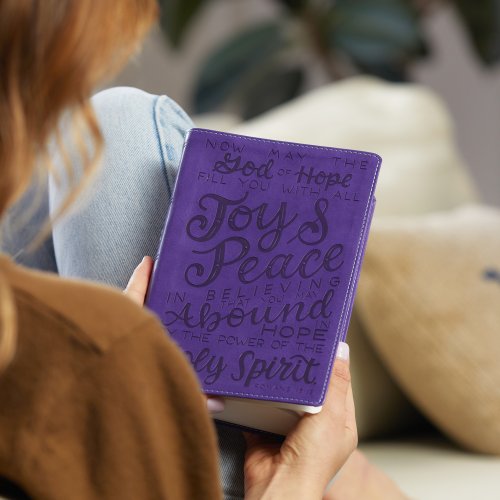 NOW MAY THE
God OF Hope
FILL YOU WITH ALL
Joy &
Peace
IN BELIEVING
THAT YOU MAY
Abound
IN
HOPE
Y THE POWER OF THE
oly Spirit.
ROMANS